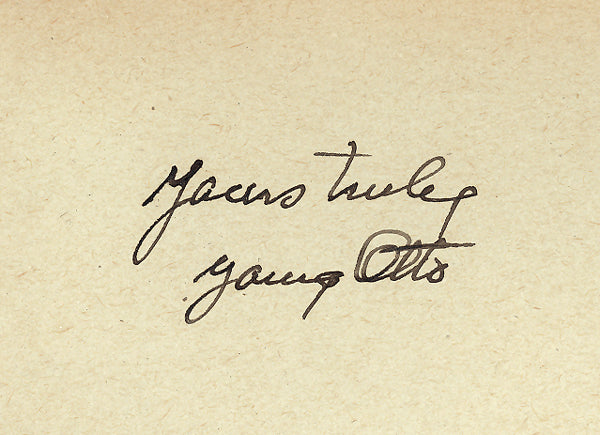 Yours truly
Young Otto